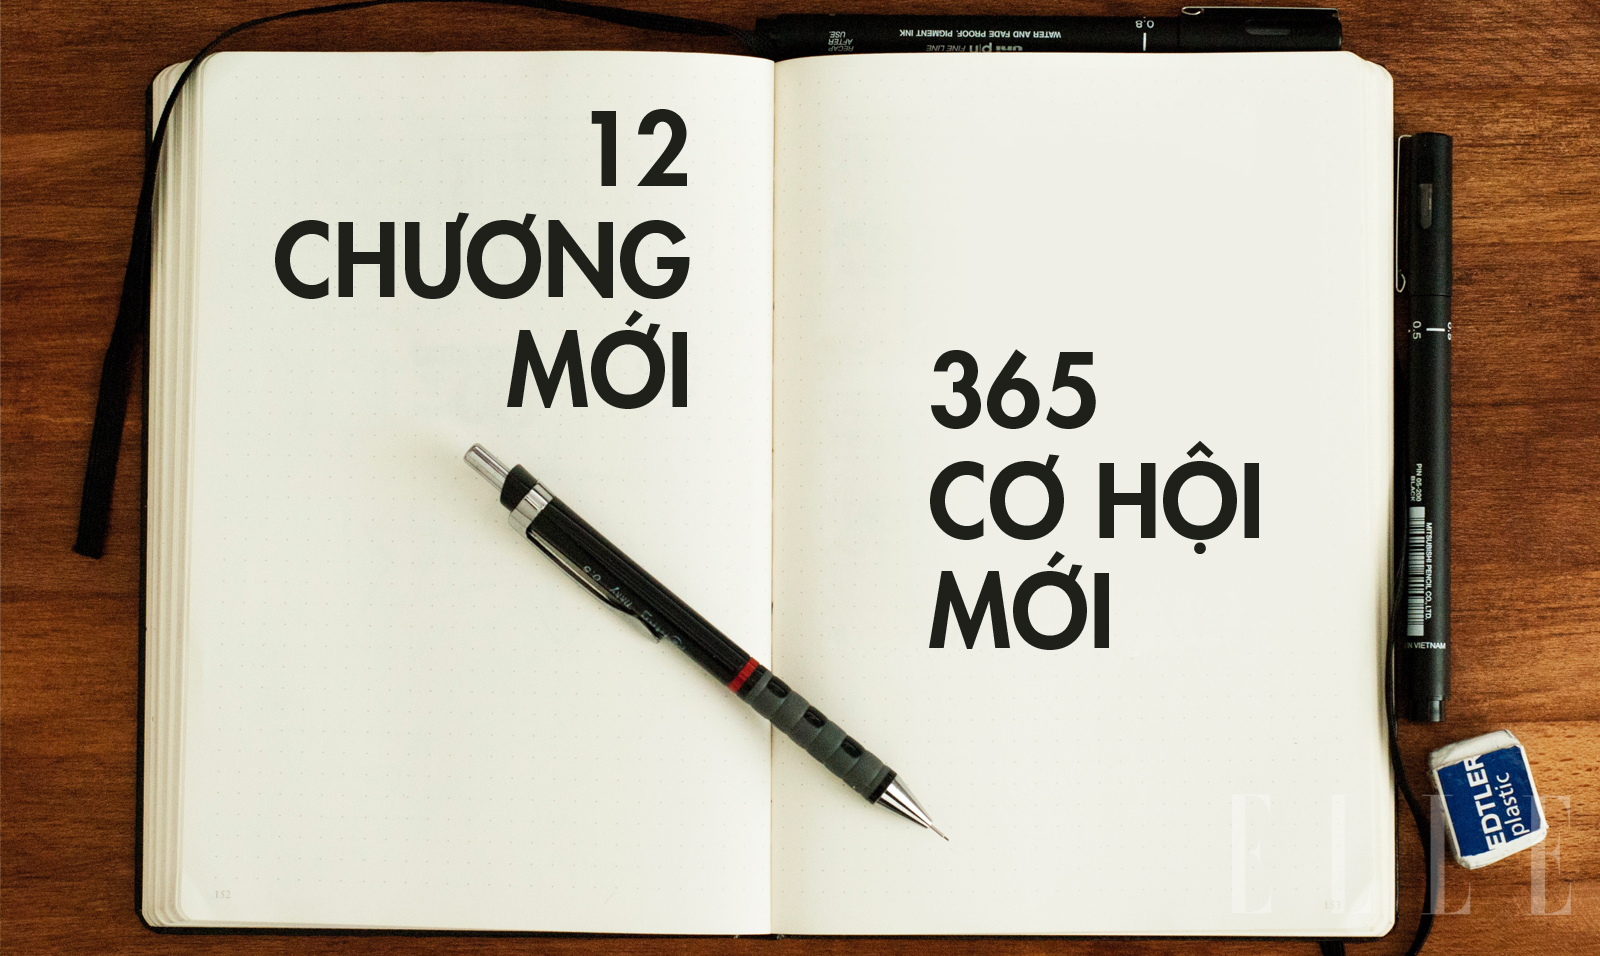 12
CHƯƠNG
MỚI
365
CƠ HỘI
MỚI
WATER AND FADE PROOF, PIGMENT INK
uni pin FINE LINE
RECAP
AFTER
USE.
0.8
0.5
PIN 05-200
BLACK
MITSUBISHI PENCIL CO., LTD.
VIETNAM
EDTLER
plastic
152
ELLE